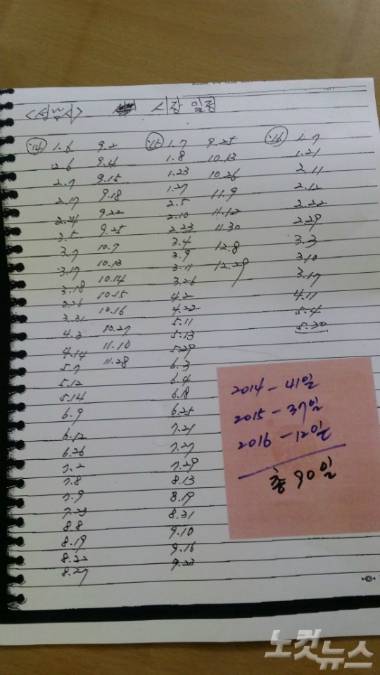 시장 일정
'14 1.6 9.2 '15 1.7 9.25 '16 1.7
2.6 9.4 1.8 10.13 1.21
2.7 9.15 1.23 10.26 2.11
2.17 9.18 1.27 11.9 2.12
2.24 9.22 2.5 11.12 2.22
3.5 9.25 2.10 11.30 2.29
3.7 10.7 2.23 12.8 3.3
3.17 10.13 3.4 12.29 3.10
3.18 10.14 3.9 3.17
3.26 10.15 3.11 4.11
3.31 10.16 3.26 5.4
4.3 10.27 4.2 5.30
4.14 11.10 4.22
5.7 11.28 5.11
5.12 5.13
5.14 5.29
6.9 6.3
6.12 6.4
6.26 6.18
7.2 6.25
7.8 7.21
7.9 7.27
7.23 7.29
8.8 8.13
8.19 8.19
8.22 8.31
8.27 9.10
9.16
9.23
2014 - 41일
2015 - 37일
2016 - 12일
총 90일
노컷
뉴스